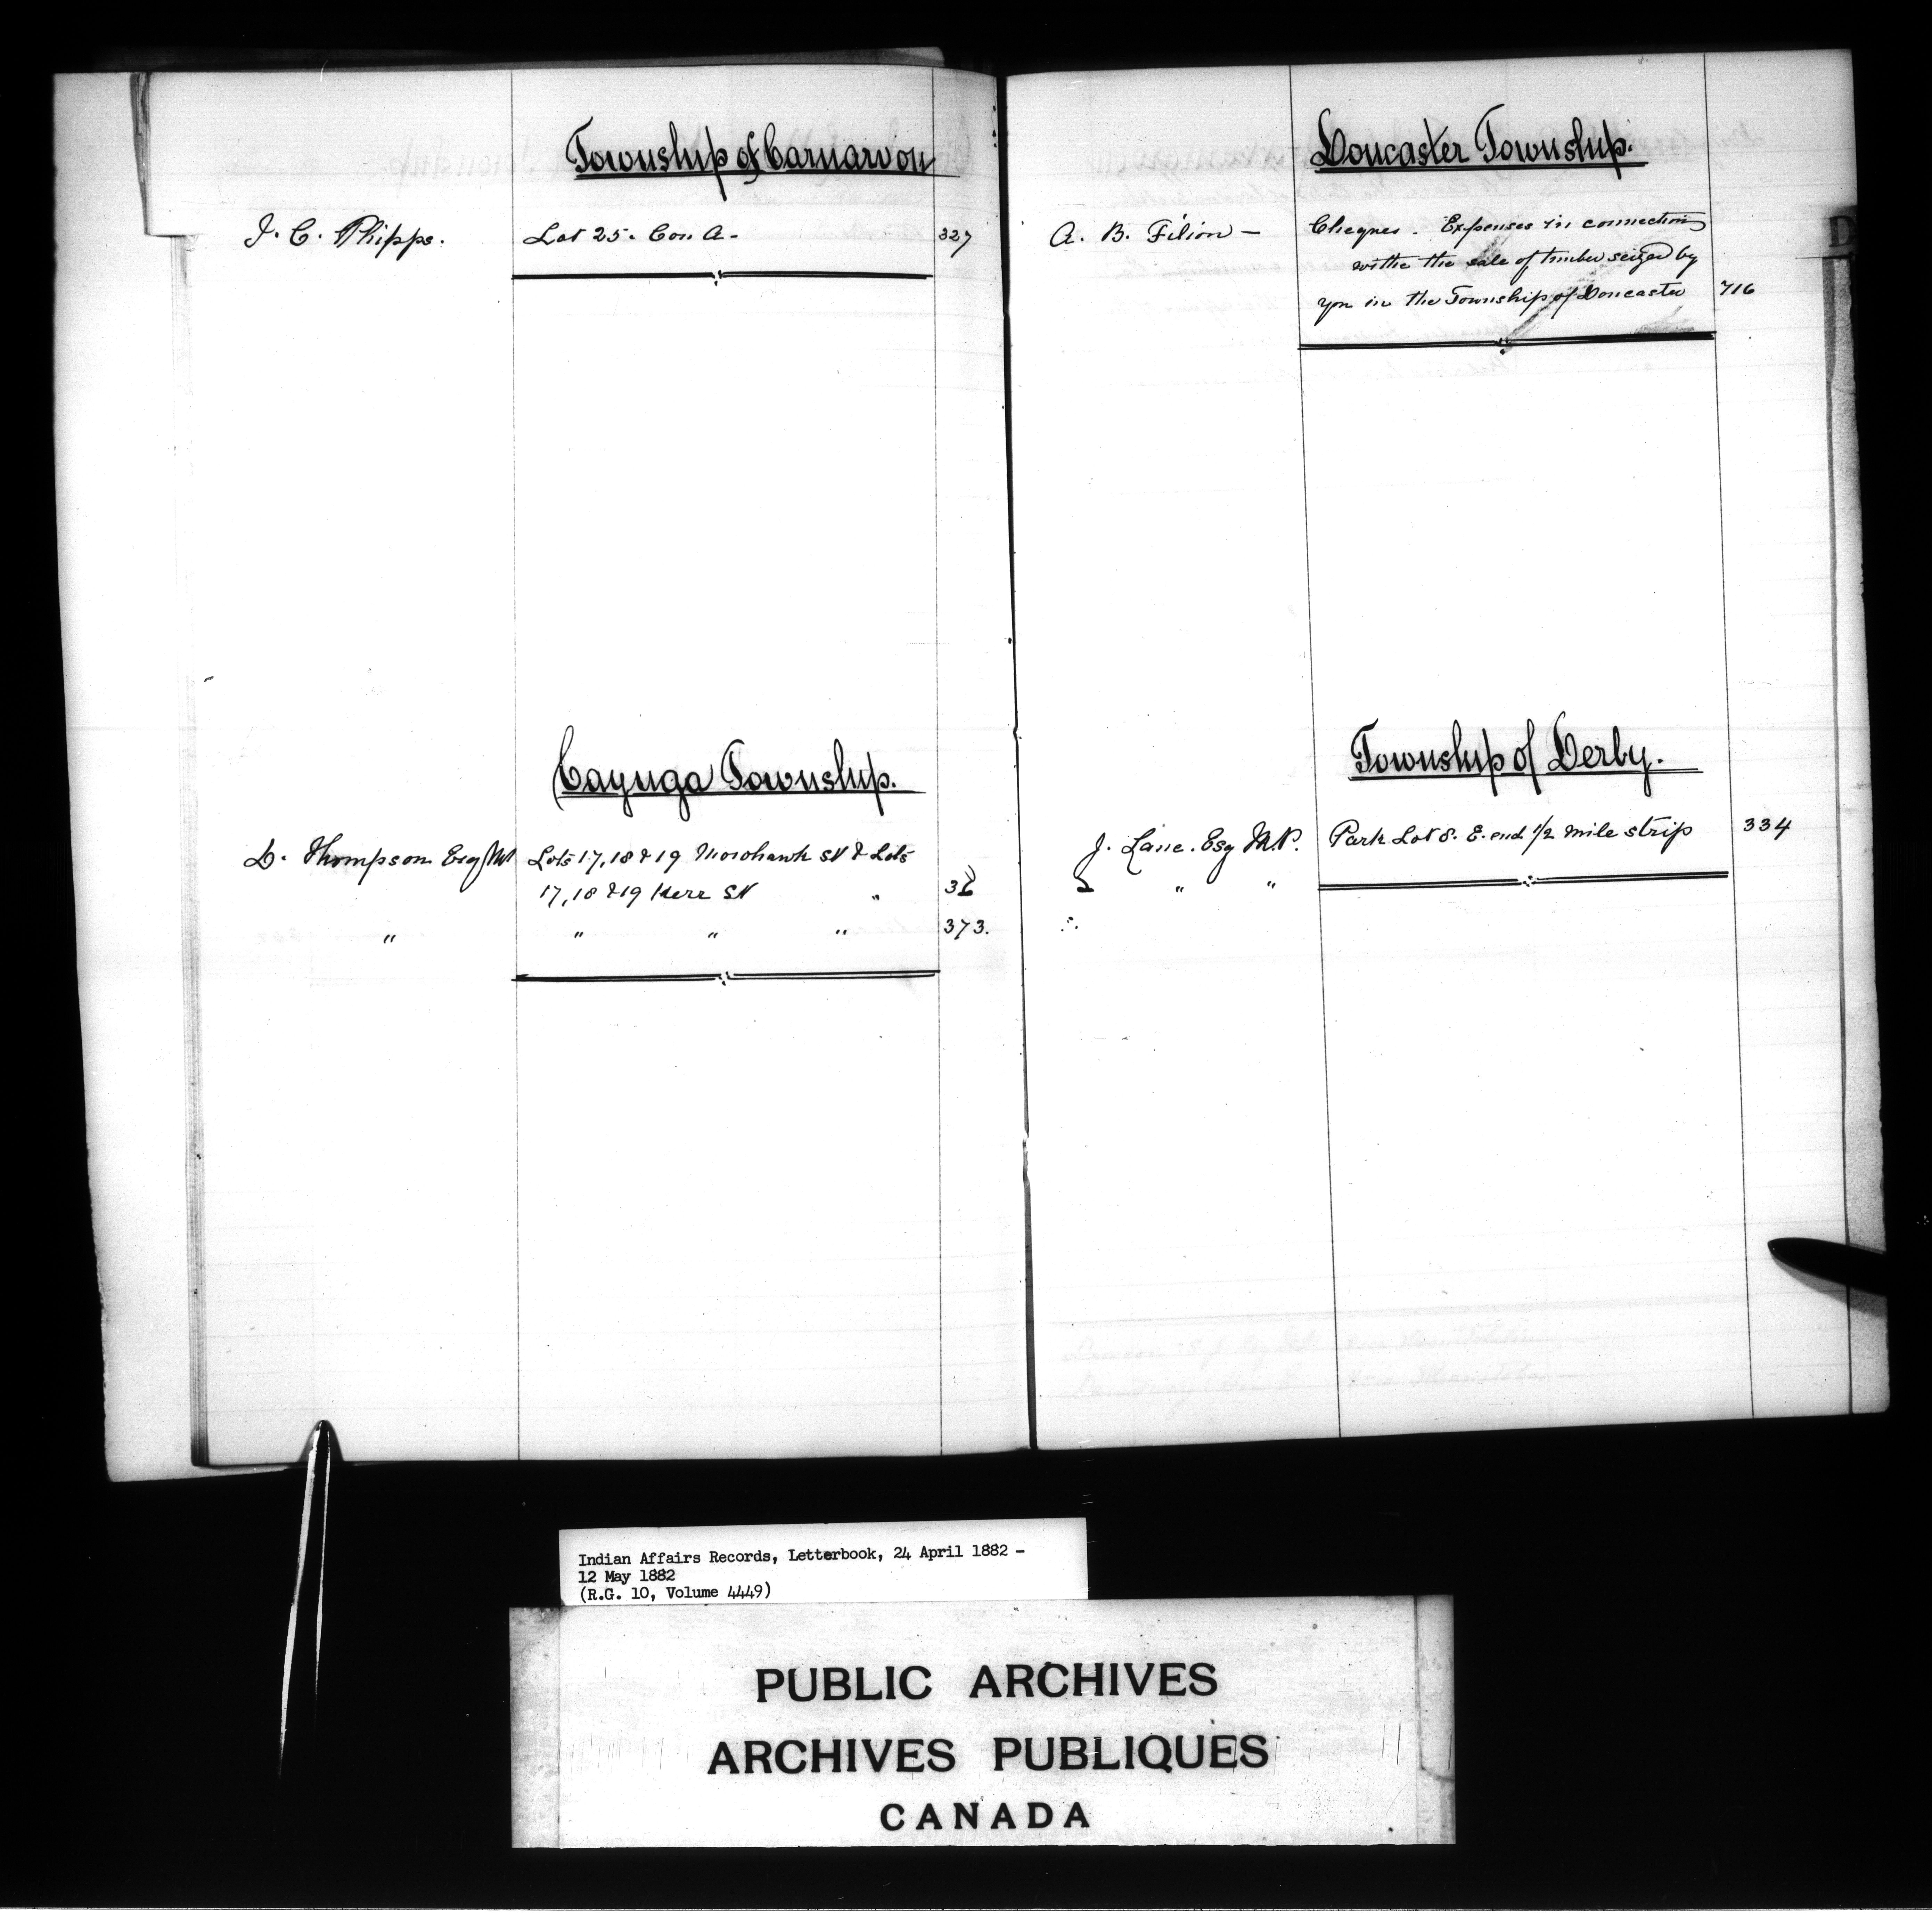 Township of Carnarvon
J. C. Phipps. Lot 25. Con A - 327
Cayuga Township.
D. Thompson Esq MP Lots 17, 18 & 19 Morohawk St & Lots
17, 18 & 19 Kerr St " 36
" " " " 373.
Doncaster Township.
A. B. Filion - Cheques. Expenses in connection
withe the sale of timber seized by
you in the Township of Doncaster 716
Township of Derby.
J. Lane. Esq M.P. Park Lot 8. E. end 1/2 mile strip 334
" "
D
Indian Affairs Records, Letterbook, 24 April 1882 -
12 May 1882
(R.G. 10, Volume 4449)
PUBLIC ARCHIVES
ARCHIVES PUBLIQUES
CANADA